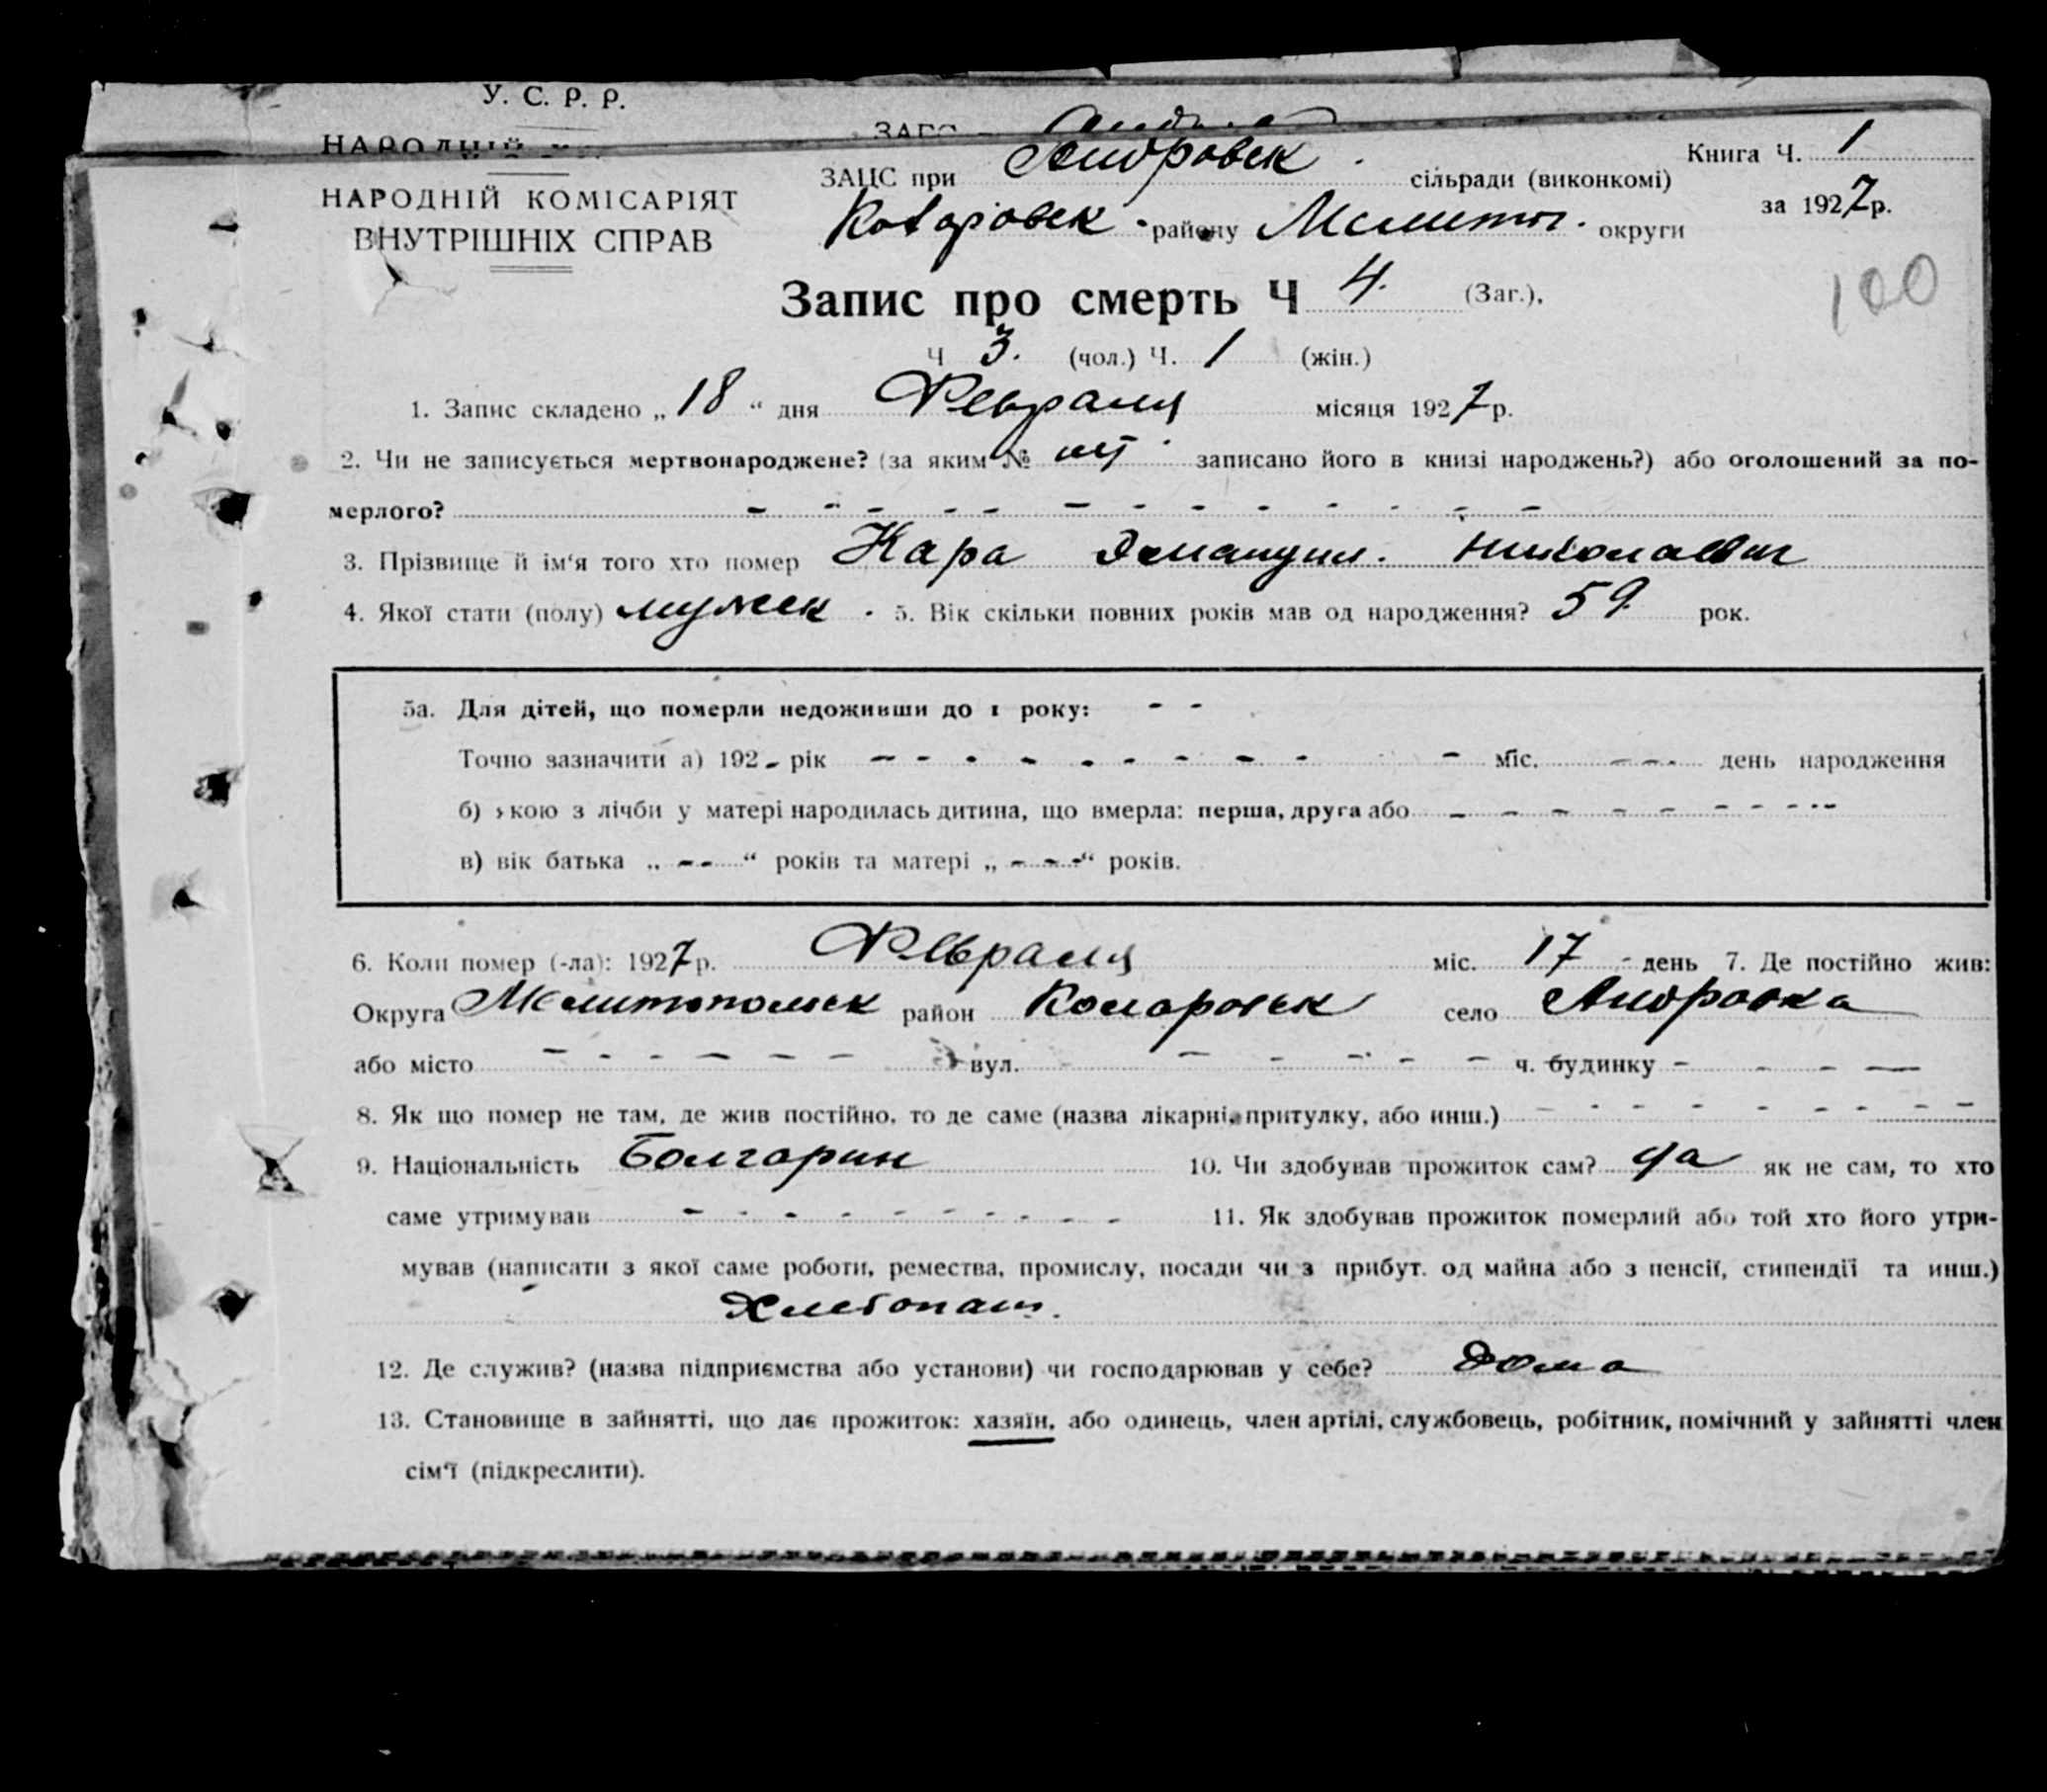 У. С. Р. Р.
НАРОДНІЙ
Андровск. Книга Ч. 1
ЗАЦС при сільради (виконкомі)
НАРОДНІЙ КОМІСАРІЯТ за 1927 р.
ВНУТРІШНІХ СПРАВ району Мелитоп. округи
Запис про смерть Ч 4. (Заг.),
Ч 3. (чол.) Ч. 1 (жін.)
100
1. Запис складено „18“ дня Февраля місяця 1927 р.
2. Чи не записується мертвонароджене? (за яким № записано його в книзі народжень?) або оголошений за по-
мерлого? - - - - - - - - - - - - -
3. Прізвище й ім‘я того хто помер Кара Эмануил. Николаевич
4. Якої стати (полу) мужск. 5. Вік скільки повних років мав од народження? 59 рок.
5а. Для дітей, що померли недоживши до 1 року: - -
Точно зазначити а) 192 - рік - - - - - - - - - - міс. - - - день народження
б) кою з лічби у матері народилась дитина, що вмерла: перша, друга або - - - - - - - - -
в) вік батька „ - - “ років та матері „ - - - “ років.
6. Коли помер (-ла): 1927 р. Февраля міс. 17 - день 7. Де постійно жив:
Округа Мелитопольск район Комаровск село Андровка
або місто - - - - - - вул. - - - - - ч. будинку - - - -
8. Як що помер не там, де жив постійно, то де саме (назва лікарні, притулку, або инш.) - - - - - - - - -
9. Національність Болгарин 10. Чи здобував прожиток сам? да як не сам, то хто
саме утримував - - - - - - - - - 11. Як здобував прожиток померлий або той хто його утри-
мував (написати з якої саме роботи, ремества, промислу, посади чи з прибут. од майна або з пенсії, стипендії та инш.)
Хлебопаш.
12. Де служив? (назва підприємства або установи) чи господарював у себе? дома
13. Становище в зайнятті, що дає прожиток: хазяїн, або одинець, член артілі, службовець, робітник, помічний у зайнятті член
сім‘ї (підкреслити).